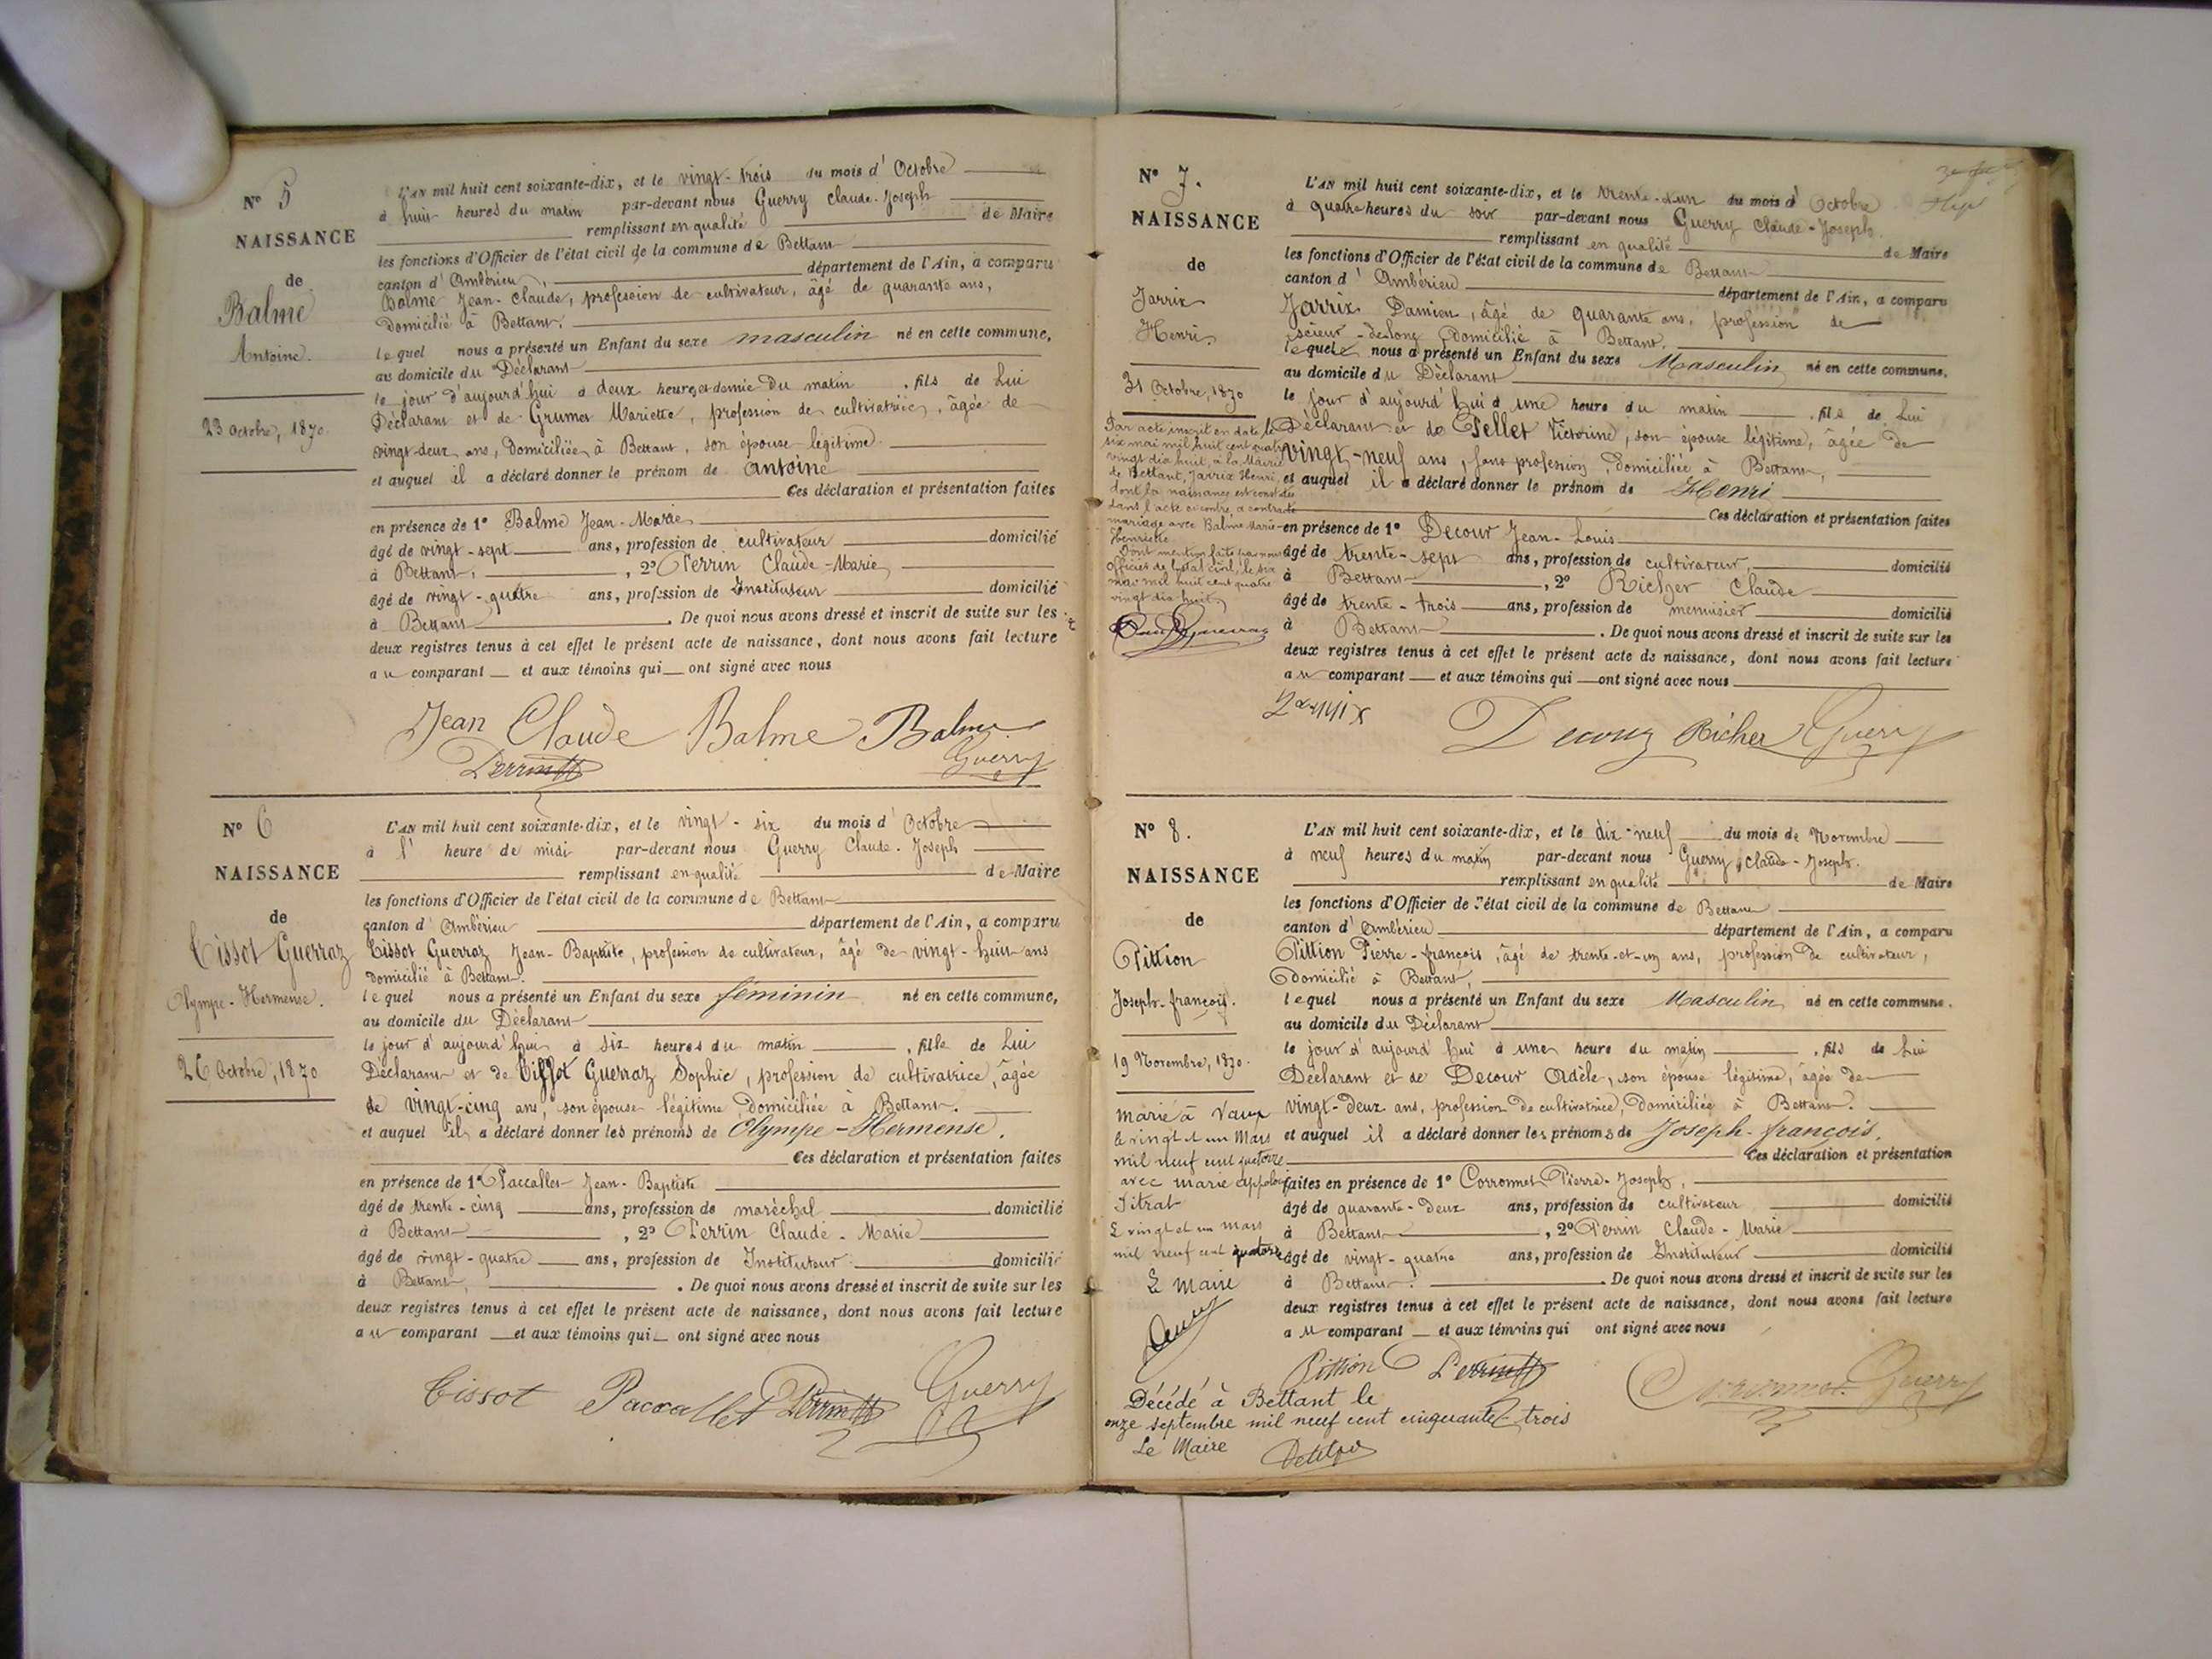 N° 5
NAISSANCE
de
Balme
Antoine.
23 Octobre, 1870.
L'AN mil huit cent soixante-dix, et le vingt-trois du mois d'Octobre
à huit heures du matin par-devant nous Guerry Claude-Joseph
remplissant en qualité de Maire
les fonctions d'Officier de l'état civil de la commune de Bettant
canton d'Ambérieu, département de l'Ain, a comparu
Balme Jean-Claude, profession de cultivateur, âgé de quarante ans,
domicilié à Bettant.
lequel nous a présenté un Enfant du sexe masculin né en cette commune,
au domicile du Déclarant
le jour d'aujourd'hui à deux heures et demie du matin, fils de Lui
Déclarant et de Grumet Mariette, profession de cultivatrice, âgée de
vingt-deux ans, domiciliée à Bettant, son épouse légitime.
et auquel il a déclaré donner le prénom de Antoine
Ces déclaration et présentation faites
en présence de 1° Balme Jean-Marie
âgé de vingt-sept ans, profession de cultivateur domicilié
à Bettant, , 2° Perrin Claude-Marie
âgé de vingt-quatre ans, profession de Instituteur domicilié
à Bettant . De quoi nous avons dressé et inscrit de suite sur les
deux registres tenus à cet effet le présent acte de naissance, dont nous avons fait lecture
au comparant et aux témoins qui ont signé avec nous
Jean Claude Balme Balme
Perrin Guerry
N° 6
NAISSANCE
de
Tissot Guerraz
Olympe-Hermense.
26 Octobre, 1870
L'AN mil huit cent soixante-dix, et le vingt-six du mois d'Octobre
à l'heure de midi par-devant nous Guerry Claude-Joseph
remplissant en qualité de Maire
les fonctions d'Officier de l'état civil de la commune de Bettant
canton d'Ambérieu département de l'Ain, a comparu
Tissot Guerraz Jean-Baptiste, profession de cultivateur, âgé de vingt-huit ans
domicilié à Bettant.
lequel nous a présenté un Enfant du sexe féminin né en cette commune,
au domicile du Déclarant
le jour d'aujourd'hui à six heures du matin , fille de Lui
Déclarant et de Tissot Guerraz Sophie, profession de cultivatrice, âgée
de vingt-cinq ans, son épouse légitime, domiciliée à Bettant.
et auquel il a déclaré donner les prénoms de Olympe-Hermense.
Ces déclaration et présentation faites
en présence de 1° Paccallet Jean-Baptiste
âgé de trente-cinq ans, profession de maréchal domicilié
à Bettant , 2° Perrin Claude-Marie
âgé de vingt-quatre ans, profession de Instituteur domicilié
à Bettant, . De quoi nous avons dressé et inscrit de suite sur les
deux registres tenus à cet effet le présent acte de naissance, dont nous avons fait lecture
au comparant et aux témoins qui ont signé avec nous
Tissot Paccallet Perrin Guerry
N° 7.
NAISSANCE
de
Jarrix
Henri
31 Octobre, 1870
Par acte inscrit en date du
six mai mil huit cent quatre
vingt dix huit, à la Mairie
de Bettant, Jarrix Henri
dont la naissance est constatée
dans l'acte ci contre, a contracté
mariage avec Balme Marie-
Henriette
Dont mention faite par nous
officier de l'état civil, le six
mai mil huit cent quatre
vingt dix huit.
L'AN mil huit cent soixante-dix, et le trente-et-un du mois d'Octobre
à quatre heures du soir par-devant nous Guerry Claude-Joseph.
remplissant en qualité de Maire
les fonctions d'Officier de l'état civil de la commune de Bettant
canton d'Ambérieu département de l'Ain, a comparu
Jarrix Damien, âgé de quarante ans, profession de
scieur-de-long, domicilié à Bettant.
lequel nous a présenté un Enfant du sexe Masculin né en cette commune.
au domicile du Déclarant
le jour d'aujourd'hui à une heure du matin , fils de Lui
Déclarant et de Pellet Victorine, son épouse légitime, âgée de
vingt-neuf ans, sans profession, domiciliée à Bettant,
et auquel il a déclaré donner le prénom de Henri
Ces déclaration et présentation faites
en présence de 1° Decour Jean-Louis
âgé de trente-sept ans, profession de cultivateur, domicilié
à Bettant , 2° Richer Claude
âgé de trente-trois ans, profession de menuisier domicilié
à Bettant . De quoi nous avons dressé et inscrit de suite sur les
deux registres tenus à cet effet le présent acte de naissance, dont nous avons fait lecture
au comparant et aux témoins qui ont signé avec nous
Jarrix Decour Richer Guerry
N° 8.
NAISSANCE
de
Pittion
Joseph-françois.
19 Novembre, 1870.
Marié à Vaux
le vingt et un Mars
mil neuf cent quatorze
avec Marie
Pitrat
Le vingt et un mars
mil neuf cent quatorze
Le Maire
L'AN mil huit cent soixante-dix, et le dix-neuf du mois de Novembre
à neuf heures du matin par-devant nous Guerry Claude-Joseph.
remplissant en qualité de Maire
les fonctions d'Officier de l'état civil de la commune de Bettant
canton d'Ambérieu département de l'Ain, a comparu
Pittion Pierre-françois, âgé de trente-et-un ans, profession de cultivateur,
Domicilié à Bettant,
lequel nous a présenté un Enfant du sexe Masculin né en cette commune.
au domicile du Déclarant
le jour d'aujourd'hui à une heure du matin , fils de Lui
Déclarant et de Decour Adèle, son épouse légitime, âgée de
vingt-deux ans, profession de cultivatrice, domiciliée à Bettant.
et auquel il a déclaré donner les prénoms de Joseph-françois.
Ces déclaration et présentation
faites en présence de 1° Corronnet Pierre-Joseph,
âgé de quarante-deux ans, profession de cultivateur domicilié
à Bettant , 2° Perrin Claude-Marie
âgé de vingt-quatre ans, profession de Instituteur domicilié
à Bettant. . De quoi nous avons dressé et inscrit de suite sur les
deux registres tenus à cet effet le présent acte de naissance, dont nous avons fait lecture
au comparant et aux témoins qui ont signé avec nous
Pittion Perrin Guerry
Décédé à Bettant le
onze septembre mil neuf cent cinquante-trois
Le Maire